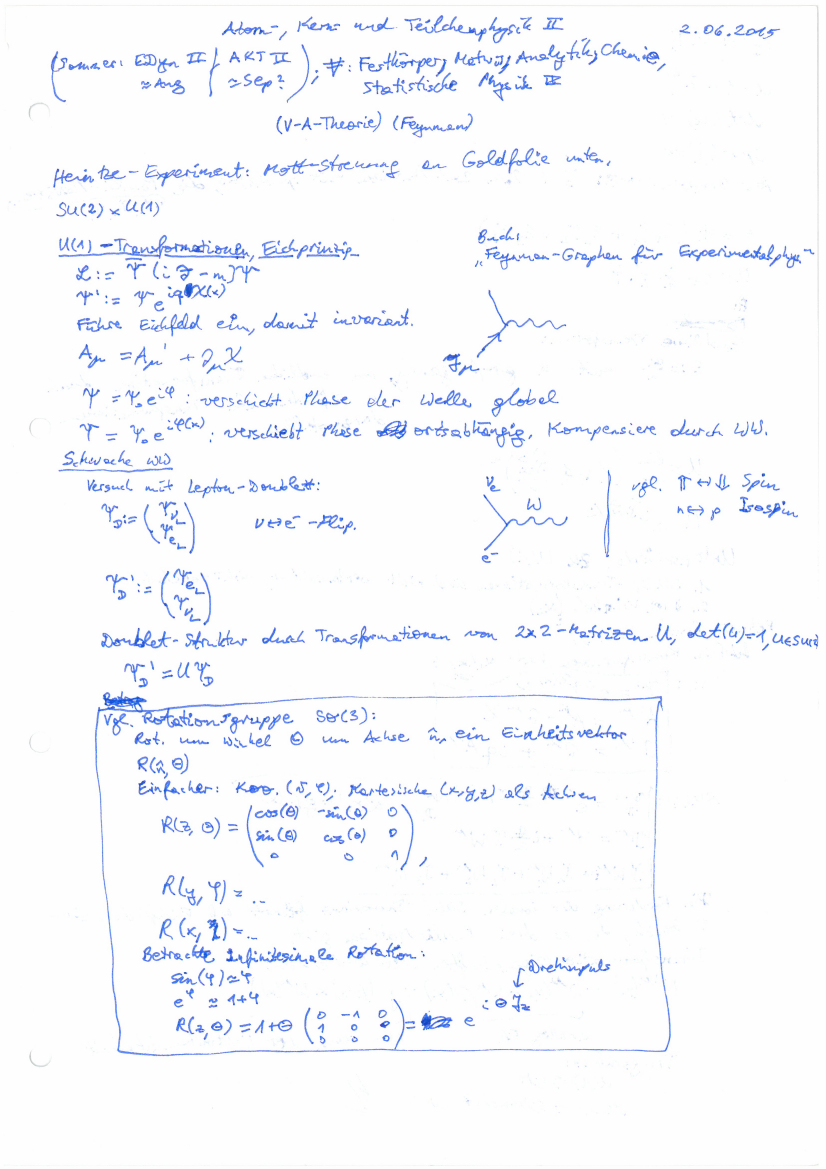 Atom-, Kern- und Teilchenphysik II 2.06.2015
(Sommer: EDyn II | AKT II); ∄: Festkörper, Motivs, Analytik, Chemie,
≈ Aug | ≈ Sep? Statistische Physik II
(V-A-Theorie) (Feynman)
Heintze-Experiment: Mott-Streuung an Goldfolie unten.
SU(2) × U(1)
U(1) - Transformationen, Eichprinzip
Buch:
"Feynman-Graphen für Experimentalphys."
L := Ψ̄ (i ∂̸ - m) Ψ
Ψ' := Ψ e^{iqχ(x)}
Führe Eichfeld ein, damit invariant.
A_μ = A_μ' + ∂_μ χ
J_μ
Ψ = Ψ₀ e^{iφ} : verschiebt Phase der Welle global
Ψ = Ψ₀ e^{iφ(x)} : verschiebt Phase ortsabhängig, Kompensiere durch WW.
Schwache WW
Versuch mit Lepton-Doublett:
Ψ_D := (Ψ_{ν_L} Ψ_{e_L}) ν ↔ e⁻ - Flip.
ν_e W e⁻
vgl. ⇈ ↔ ⇊ Spin
n ↔ p Isospin
Ψ_D' := (Ψ_{e_L} Ψ_{ν_L})
Doublet-Struktur durch Transformationen von 2x2-Matrizen U, det(U)=1, U∈SU(2)
Ψ_D' = U Ψ_D
Vgl. Rotationsgruppe SO(3):
Rot. um Winkel Θ um Achse n̂, ein Einheitsvektor
R(n̂, Θ)
Einfacher: Koo. (ϑ, φ), Kartesische (x,y,z) als Achsen
R(z, Θ) = (cos(Θ) -sin(Θ) 0
sin(Θ) cos(Θ) 0
0 0 1),
R(y, φ) = ..
R(x, ) = ..
Betrachte Infinitesimale Rotation:
sin(φ) ≈ φ
e^φ ≈ 1+φ
Drehimpuls
R(z, Θ) = 1+Θ (0 -1 0
1 0 0
0 0 0) = e^{iΘJ_z}